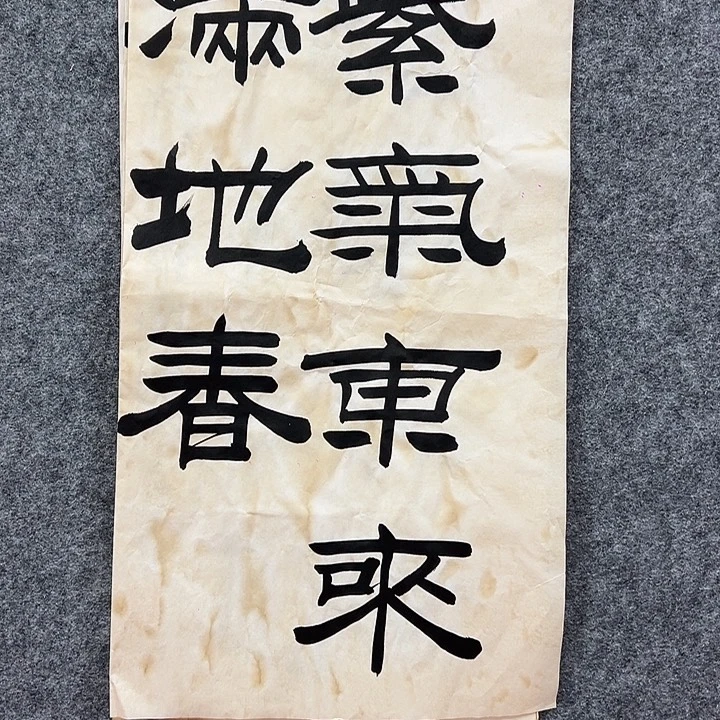 紫氣東來
滿地春